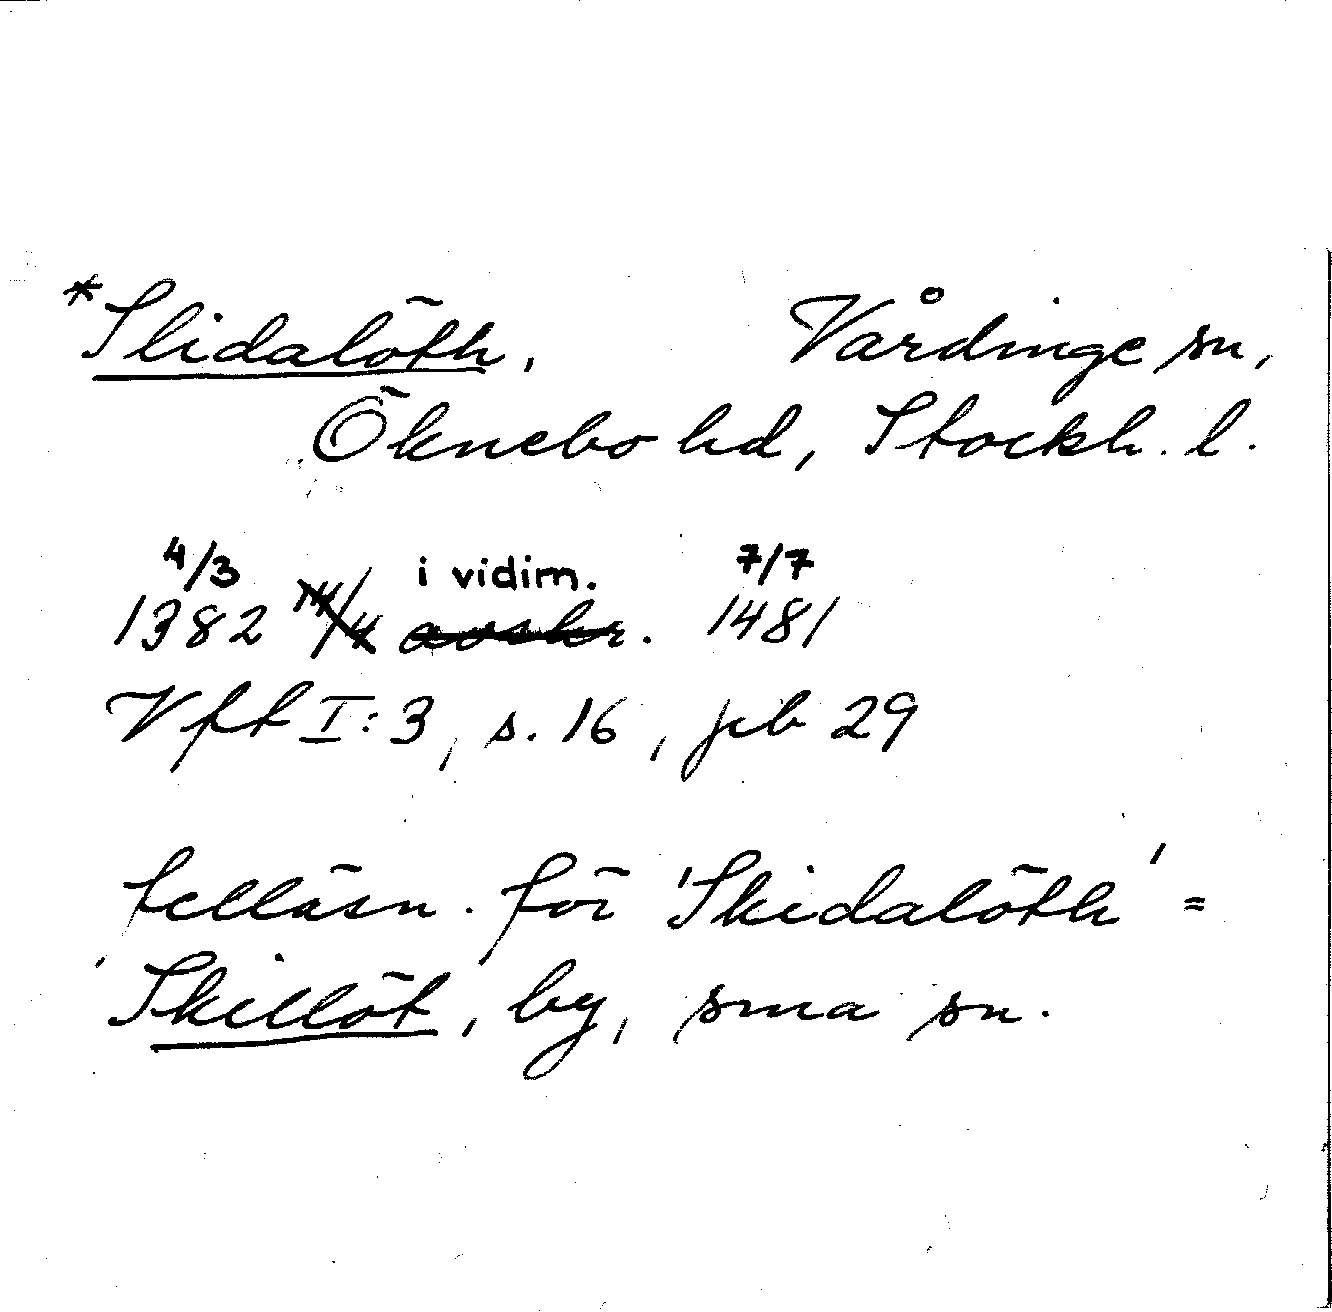 *Slidalöth, Vårdinge sn,
Öknebo hd, Stockh. l.
4/3 i vidim. 7/7
1382 14/4 avskr. 1481
Vff I:3, s. 16, peb 29
felläsn. för 'Skidalöth' =
Skillöt, by, sma sn.